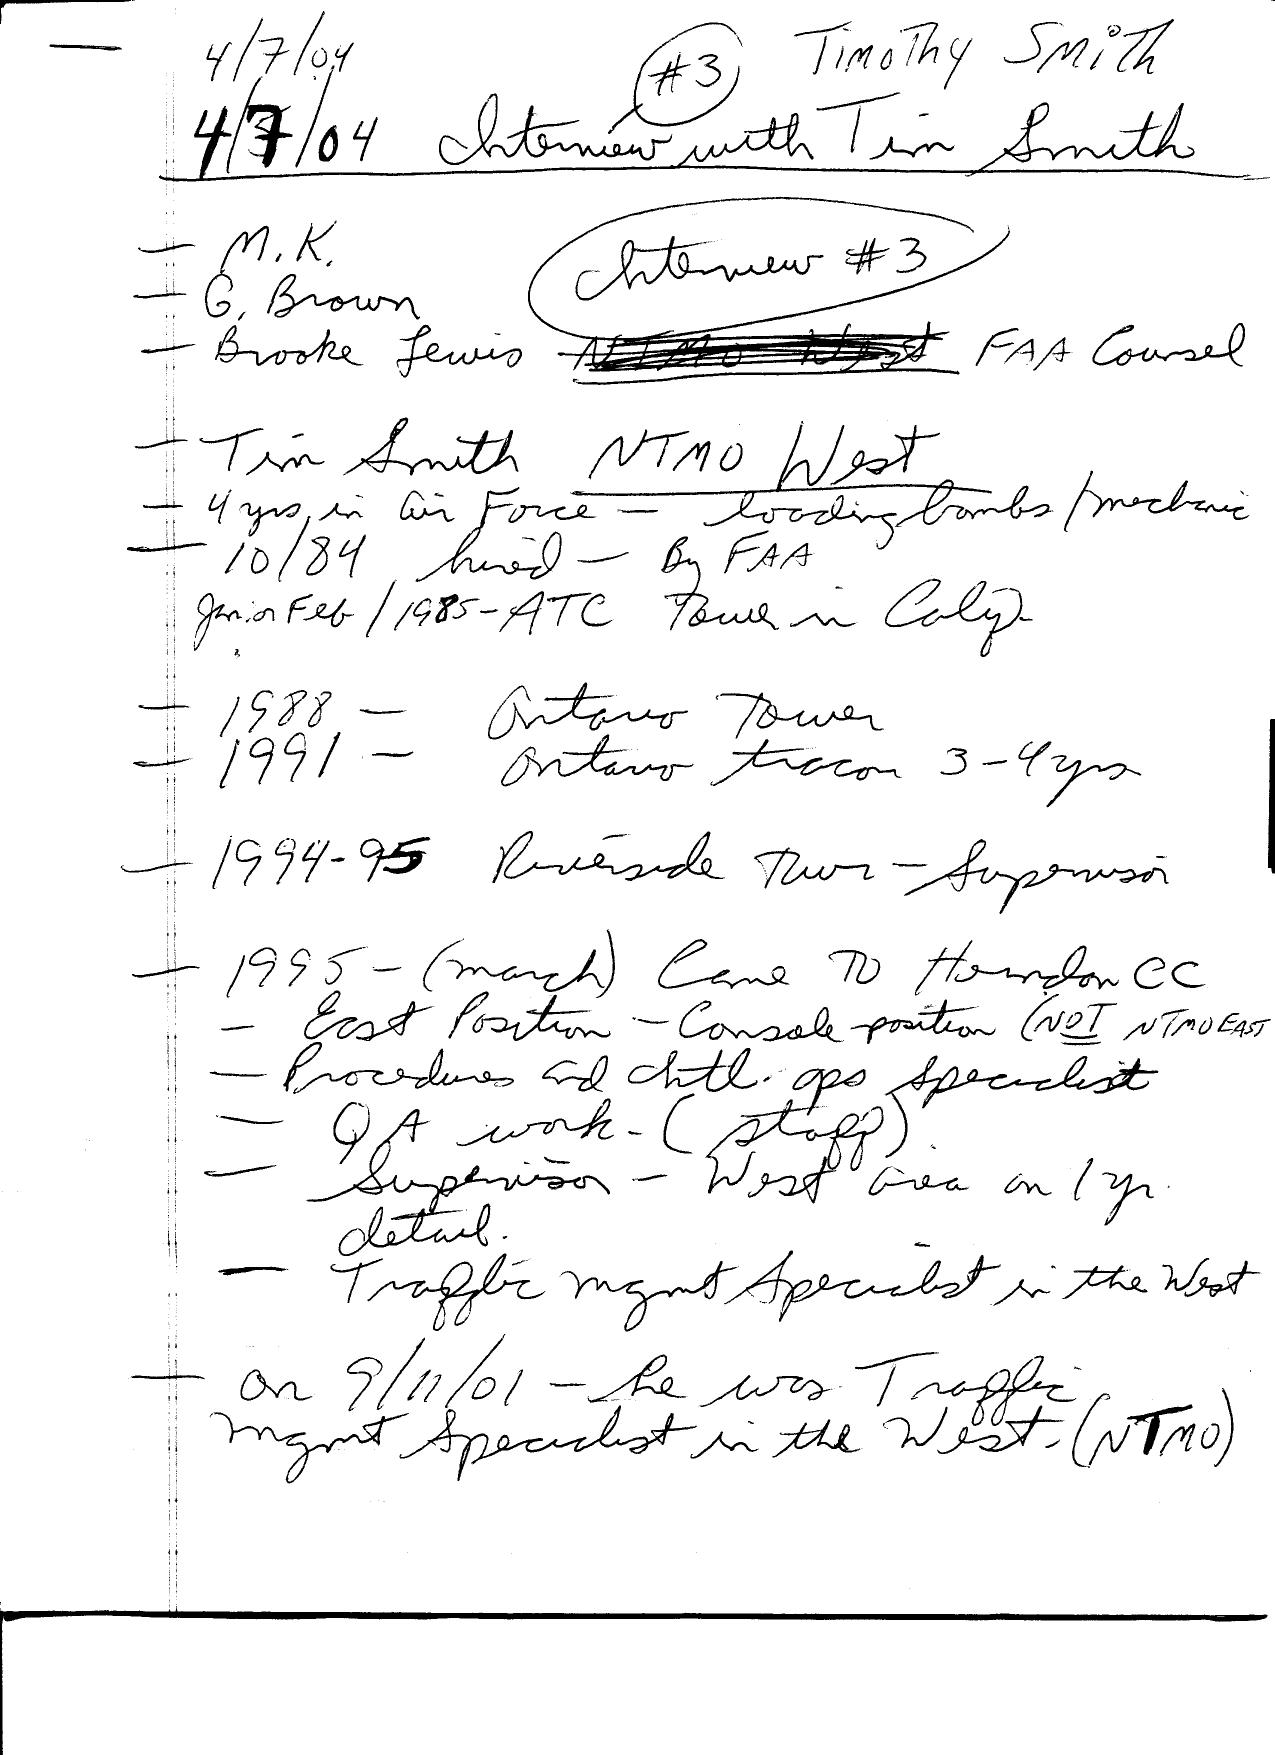 4/7/04 #3 Timothy Smith
4/7/04 Interview with Tim Smith
— M.K. Interview #3
— G. Brown
— Brooke Lewis - NTMO West FAA Counsel
— Tim Smith NTMO West
— 4 yrs in Air Force — loading bombs/mechanic
— 10/84 hired — By FAA
Jan. or Feb / 1985 - ATC Tower in Calif.
— 1988 — Ontario Tower
— 1991 — Ontario tracon 3-4 yrs
— 1994-95 Riverside Twr — Supervisor
— 1995 - (march) Came To Herndon CC
— East Position — Console position (NOT NTMO EAST
— Procedures and Intl. ops Specialist
— QA work - (staff)
— Supervisor — West area on 1 yr.
detail.
— Traffic mgmt Specialist in the West
— on 9/11/01 — he was Traffic
mgmt Specialist in the West. (NTMO)